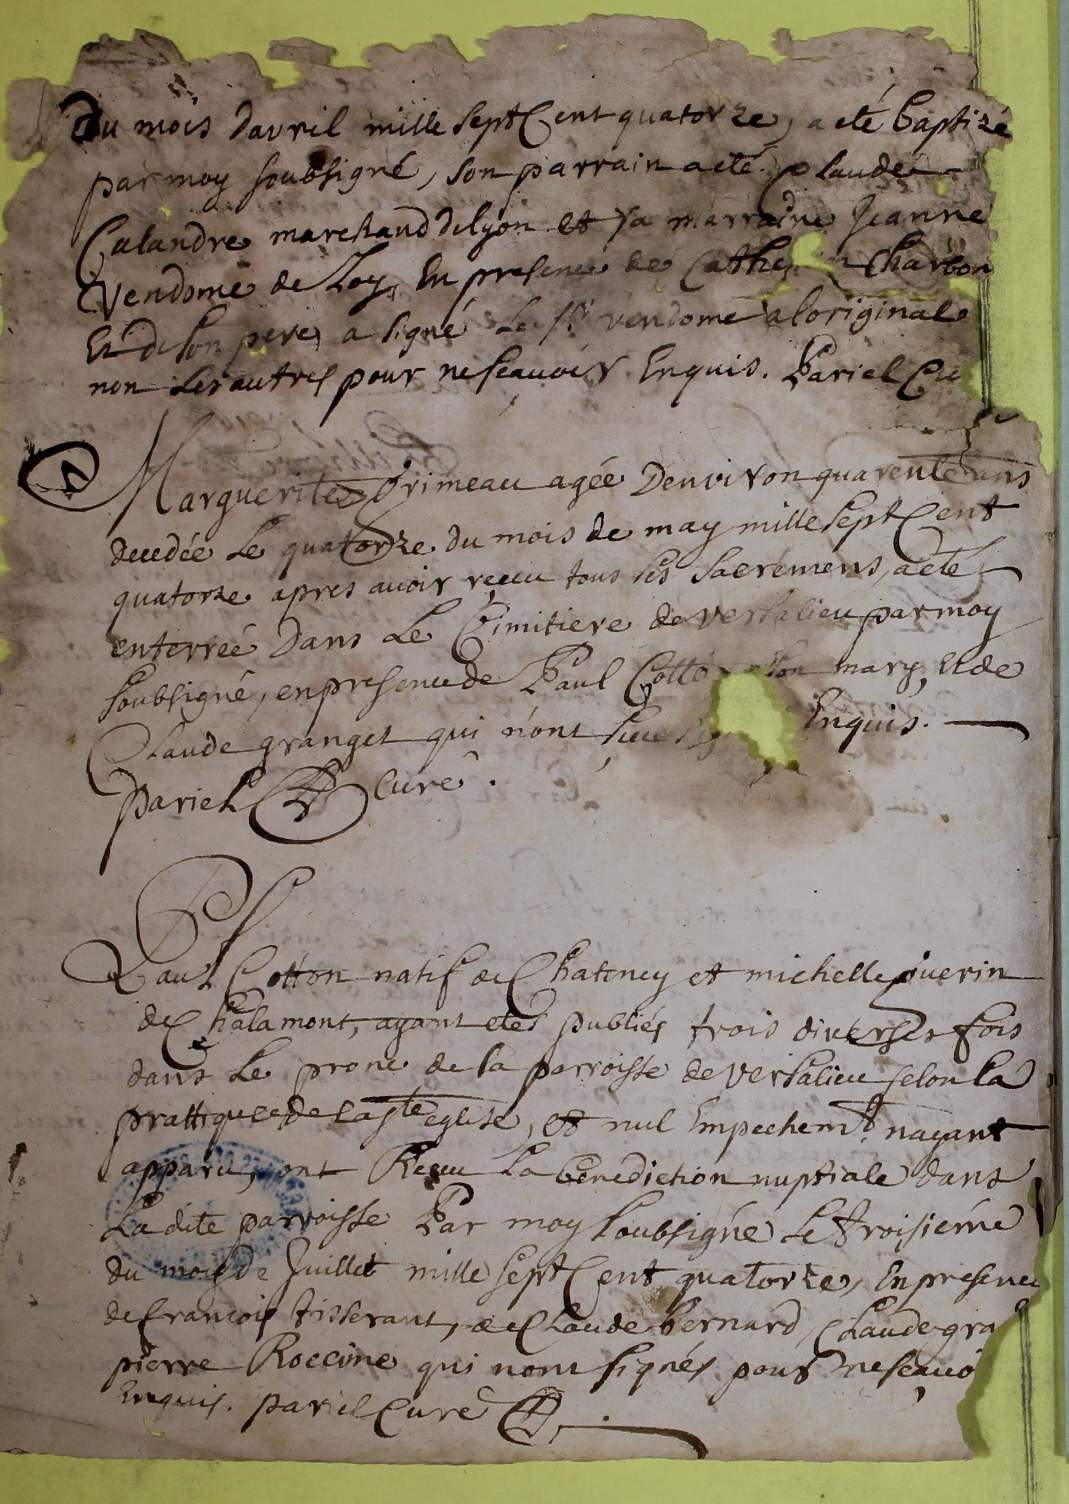 du mois davril mille sept Cent quatorze, a eté baptizé
par moy soubsigné, son parrain a eté Claude
Calandre marchand delyon et sa marraine Jeanne
Vendome de Loy, En presence de Charbon
Et de son pere, a signé Le Sr vendome a loriginal
non Les autres pour ne scauoir Enquis. Pariel Cu
Marguerite Grimeau agée Denviron quarente ans
decedée Le quatorze du mois de may mille sept Cent
quatorze apres auoir reçeu tous les Sacremens, a eté
enterrée Dans Le Cimitiere de Versalieu par moy
soubsigné, en presence de Paul Cotto son mary, et de
Claude granget qui n'ont sceu Enquis.
Pariel Curé.
Paul Cotton natif de Chateney et michelle guerin
de Chalamont, ayant etés publiés trois diverses fois
dans Le prone de la parroisse de Versalieu selon la
prattique de la ste eglise, et nul Empechemt nayant
apparu, ont Reçeu La benediction nuptiale dans
La dite parroisse Par moy soubsigné Le troisieme
du mois de Juillet mille sept Cent quatorze, En presence
de francois tisserant, de Claude bernard, Claude gra
pierre Roccine qui nont signés pour ne scauo
Enquis. pariel Curé